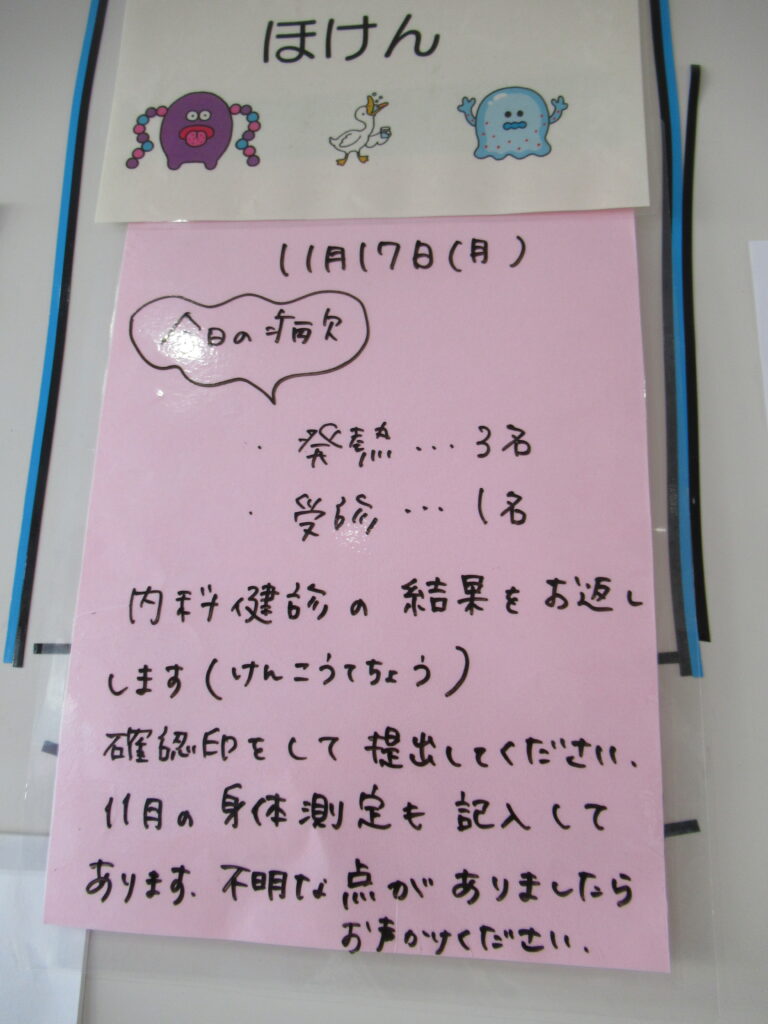 ほけん
11月17日(月)
今日の病欠
・ 発熱 … 3名
・ 受診 … 1名
内科健診の結果をお返し
します(けんこうてちょう)
確認印をして提出してください.
11月の身体測定も記入して
あります. 不明な点がありましたら
お声がけください.